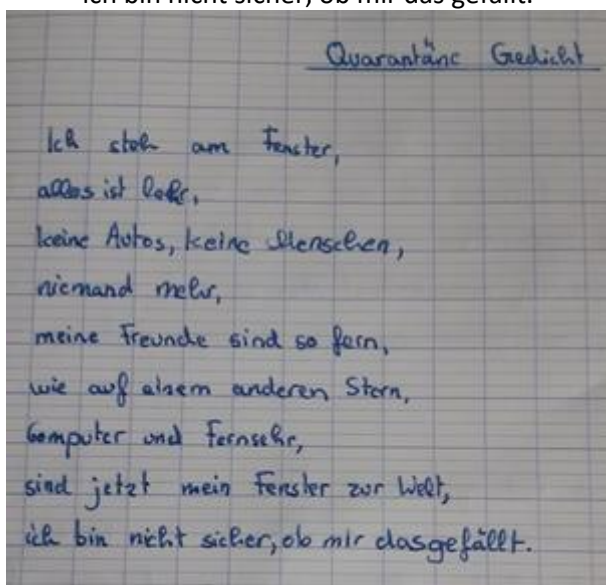 ich bin nicht sicher, ob mir das gefällt.
Quarantäne Gedicht
Ich steh am Fenster,
alles ist lehr,
keine Autos, keine Menschen,
niemand mehr,
meine Freunde sind so fern,
wie auf einem anderen Stern,
Computer und Fernsehr,
sind jetzt mein Fenster zur Welt,
ich bin nicht sicher, ob mir dasgefällt.